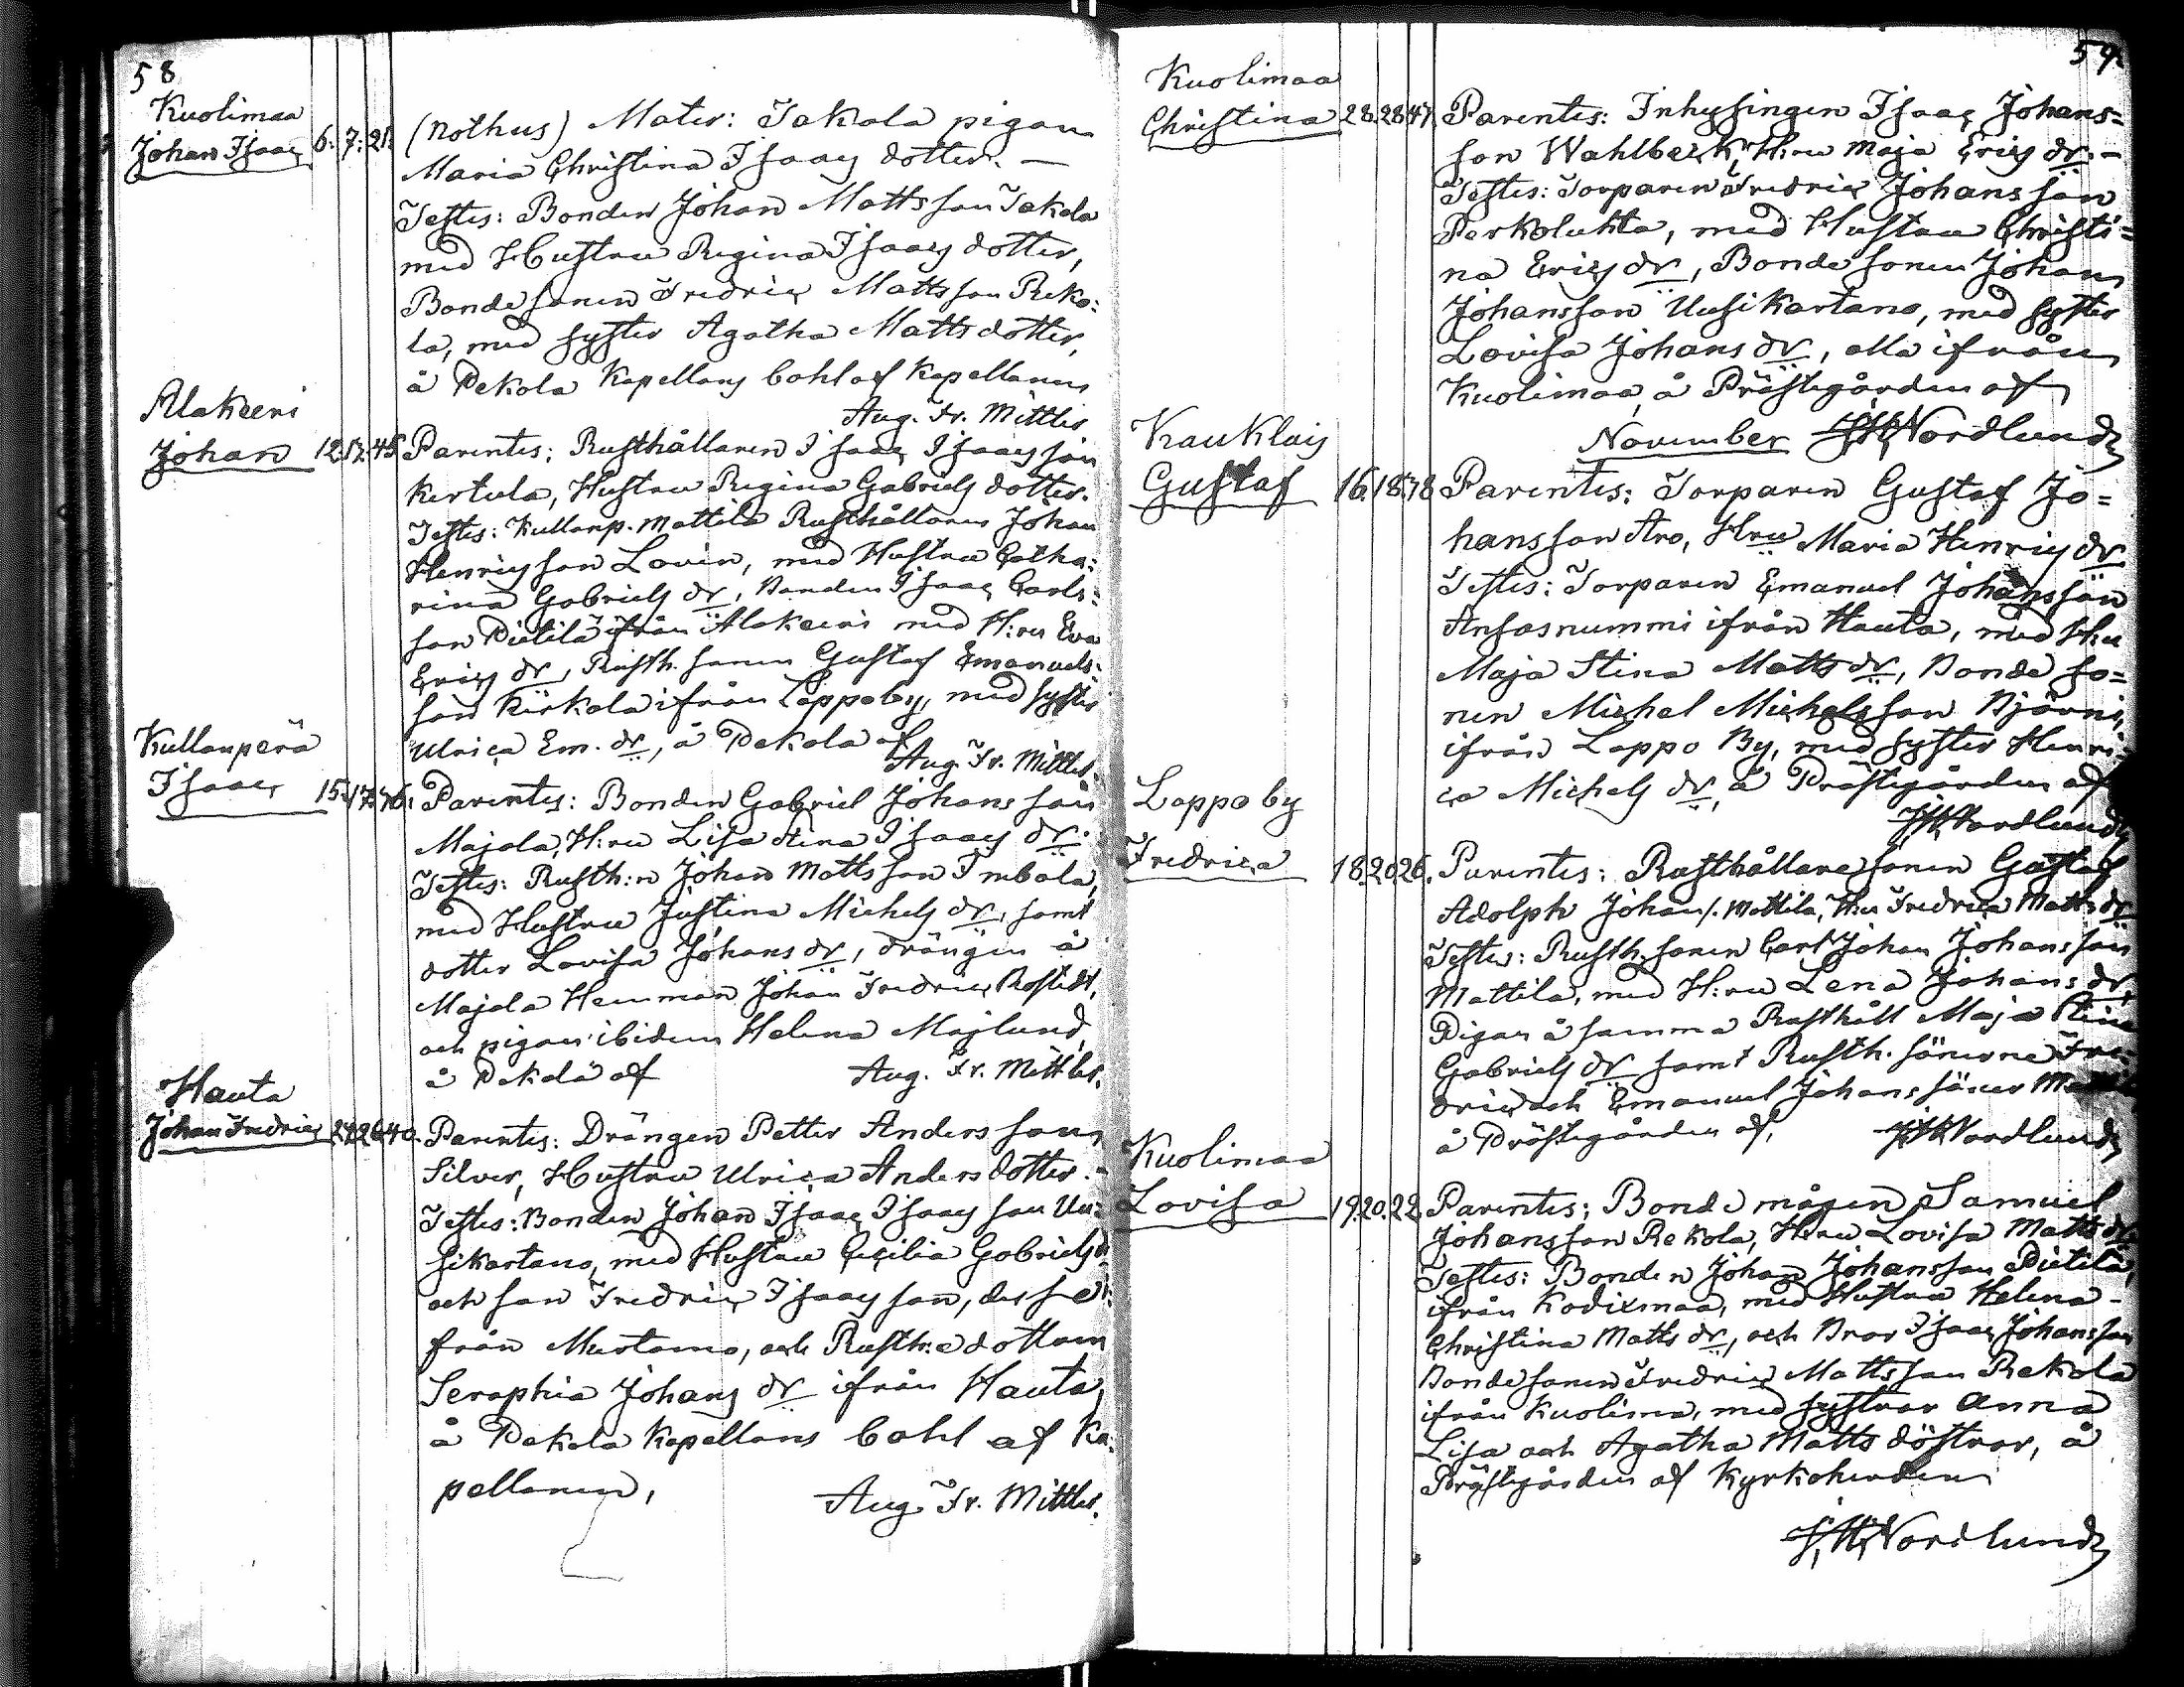 58
Kuolimaa
Johan Isaac 6. 7. 21.
(Nothus) Mater: Jakola pigan
Maria Christina Isaacs dotter. —
Testes: Bonden Johan Mattsson Jakola
med Hustru Regina Isaacs dotter,
Bondesonen Fredric Mattsson Reko:
la, med syster Agatha Matts dotter,
å Pekola Kapellans bohl af Kapellanen
Aug. Fr. Mittler
Alakeeni
Johan 12. 17. 45.
Parentes: Rusthållaren Isaac Isaacsson
Kertula, Hustru Regina Gabriels dotter.
Testes: Kullanp. Mattila Rusthållaren Johan
Henricsson Lovin, med Hustru Catha:
rina Gabriels dr, Bonden Isaac Carls:
son Pietilä ifrån Alakeeni med H:ru Eva
Erics dr, Rusth. sonen Gustaf Emanuels:
son Kirkola ifrån Lappoby, med syster
Ulrica Em. dr, å Pekola af
Aug. Fr. Mittler.
Kullanperä
Isaac 15. 17. 76.
Parentes: Bonden Gabriel Johansson
Majala, H:ru Lisa Stina Isaacs dr.
Testes: Rusth:n Johan Mattsson Imbala,
med Hustru Justina Michels dr, samt
dotter Lovisa Johans dr, drängen å
Majala Hemman Johan Fredric Rostedt,
och pigan ibidem Helena Majlund,
å Pekola af Aug. Fr. Mittler.
Hauta
Johan Fredric 24. 26. 40.
Parentes: Drängen Petter Andersson
Silver, Hustru Ulrica Anders dotter. -
Testes: Bonden Johan Isaac Isaacsson Uu:
sikartano, med Hustru Cecilia Gabriels dr
och son Fredric Isaacsson,
från Murtamo, och Rusth:e dottern
Seraphia Johans dr ifrån Hauta,
å Pekola Kapellans bohl af Ka:
pellanen, Aug. Fr. Mittler.
59.
Kuolimaa
Christina 28. 28. 47.
Parentes: Inhysingen Isaac Johans=
son Wahlbeck, H:ru Maja Erics dr. -
Testes: Torparen Fredric Johansson
Perkolukta, med Hustru Christi=
na Erics dr, Bonde sonen Johan
Johansson Uusikartano, med syster
Lovisa Johans dr, alla ifrån
Kuolimaa å Prästegården af
November Nordlund
Kauklais
Gustaf 16. 18. 78.
Parentes: Torparen Gustaf Jo=
hansson Aro, Hru Maria Henrics dr
Testes: Torparen Emanuel Johansson
Ansasnummi ifrån Hauta, med H:ru
Maja Stina Matts dr, Bonde so=
nen Michel Michelsson Björni,
ifrån Lappo By, med syster Henri=
ca Michels dr, å Prästegården af
Nordlund
Lappoby
Fredrica 18. 20. 26.
Parentes: Rusthållare sonen Gustaf
Adolph Johans. Mattila, H:ru Fredrica Matts dr
Testes: Rusth. sonen Carl Johan Johansson
Mattila, med H:ru Lena Johans dr,
Pigan å samma Rusthåll Maja Stina
Gabriels dr samt Rusth. sönerne Fre=
dric och Emanuel Johanssöner
å Prästegården af, Nordlund
Kuolimaa
Lovisa 19. 20. 22.
Parentes: Bonde mågen Samuel
Johansson Rekola, H:ru Lovisa Matts dr
Testes: Bonden Johan Johansson Pietilä,
ifrån Kodixmaa, med Hustru Helena
Christina Matts dr, och Bror Isaac Johansson
Bondesonen Fredric Mattsson Rekola
ifrån Kuolima, med systrar Anna
Lisa och Agatha Matts döttrar, å
Prästgården af Kyrkoherden
Nordlund